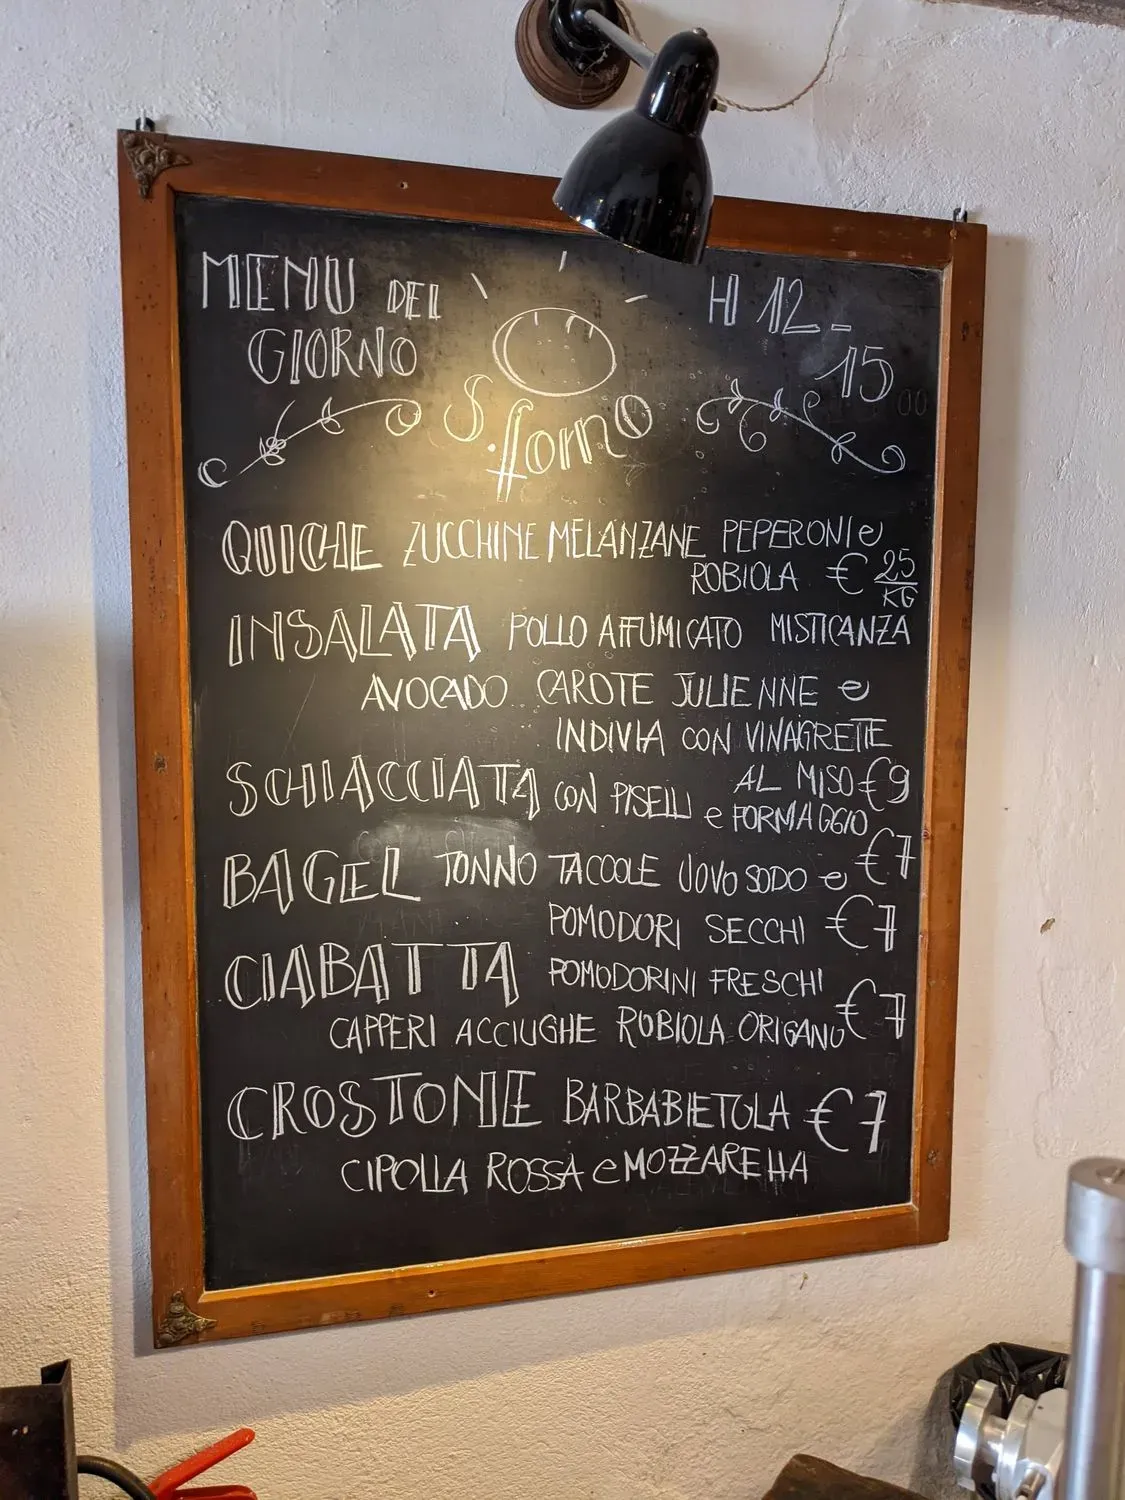 MENU DEL
GIORNO
H 12-
15
S.forno
QUICHE ZUCCHINE MELANZANE PEPERONI e
ROBIOLA € 25/KG
INSALATA POLLO AFFUMICATO MISTICANZA
AVOCADO CAROTE JULIENNE e
INDIVIA CON VINAGRETTE
AL MISO € 9
SCHIACCIATA CON PISELLI e FORMAGGIO
€ 7
BAGEL TONNO TACCOLE UOVO SODO e
POMODORI SECCHI € 7
CIABATTA POMODORINI FRESCHI
CAPPERI ACCIUGHE ROBIOLA ORIGANO € 7
CROSTONE BARBABIETOLA € 7
CIPOLLA ROSSA e MOZZARELLA